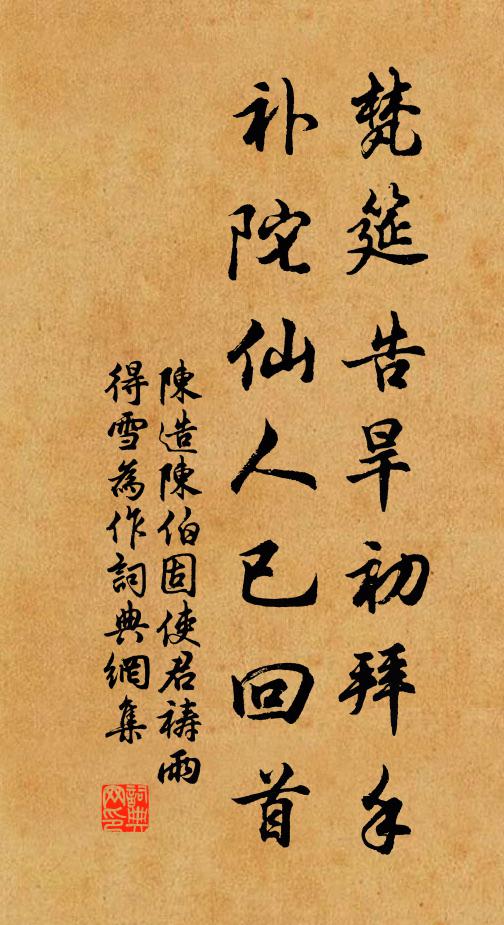 梵筵告旱初拜手
补陀仙人已回首
陳造陳伯固使君禱雨
得雪為作詞典網集
詞典網印